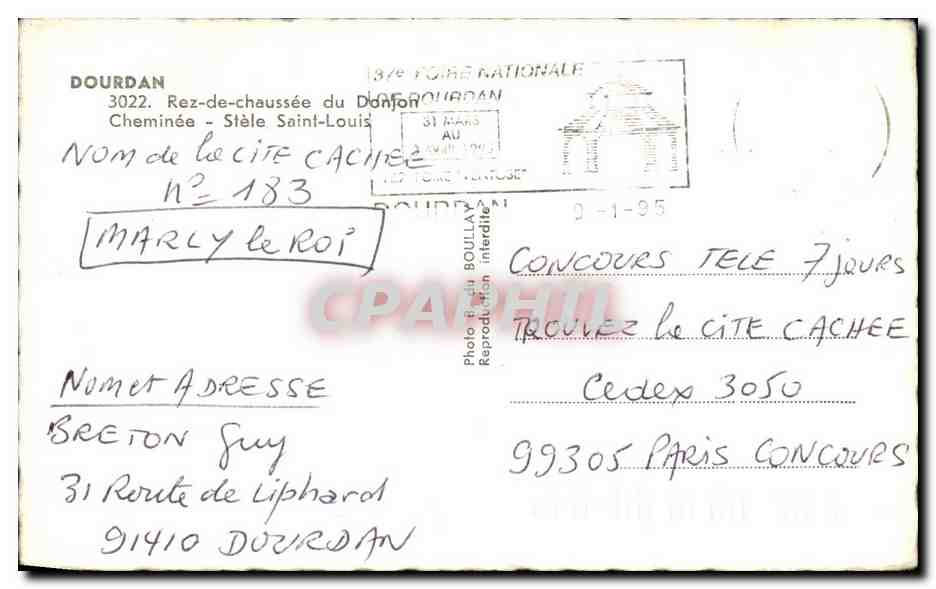 DOURDAN
3022. Rez-de-chaussée du Donjon
Cheminée - Stèle Saint-Louis
37e FOIRE NATIONALE
DE DOURDAN
31 MARS
AU
DOURDAN
9-1-95
NOM de la CITE CACHEE
nº 183
MARLY le ROI
Nom et ADRESSE
BRETON Guy
31 Route de Liphard
91410 DOURDAN
Photo B. du BOULLAY
Reproduction interdite
CONCOURS TELE 7 jours
TROUVEZ la CITE CACHEE
Cedex 3050
99305 PARIS CONCOURS
CPAPHIL